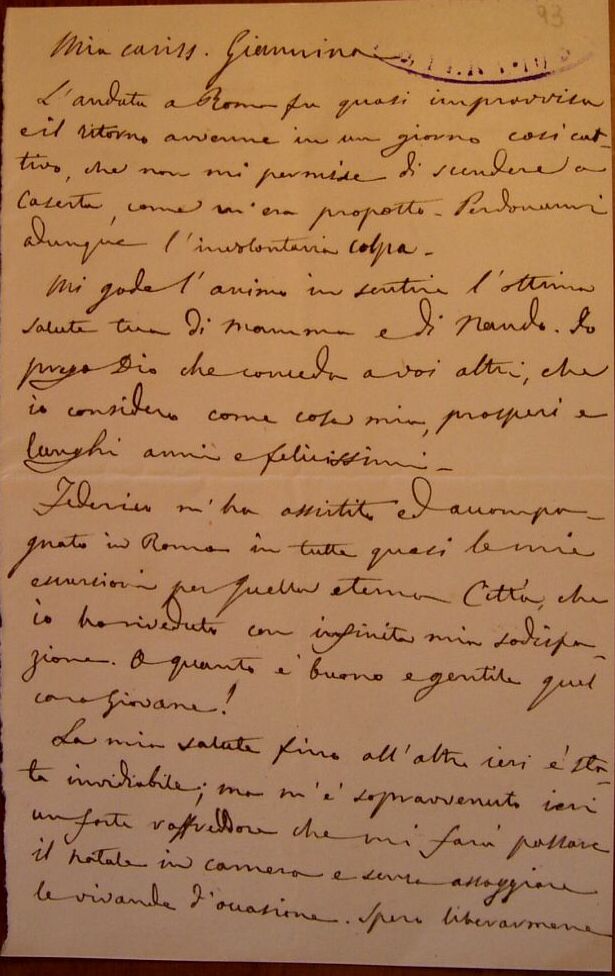 93
Mia cariss. Giannina
L'andata a Roma fu quasi improvvisa
e il ritorno avvenne in un giorno così cat-
tivo, che non mi permise di scendere a
Caserta, come m'era proposto - Perdonami
adunque l'involontaria colpa -
Mi gode l'animo in sentire l'ottima
salute tua di Mamma e di Nando. Io
prego Dio che conceda a voi altri, che
io considero come cosa mia, prosperi e
lunghi anni e felicissimi -
Federico m'ha assistito ed accompa-
gnato in Roma in tutte quasi le mie
escursioni per quella eterna Città, che
io ho riveduto con infinita mia sodisfa-
zione. O quanto è buono e gentile quel
caro giovane!
La mia salute fino all'altro ieri è sta-
ta invidiabile; ma m'è sopravvenuto ieri
un forte raffreddore che mi farà passare
il natale in camera e senza assaggiare
le vivande d'occasione. Spero liberarmene